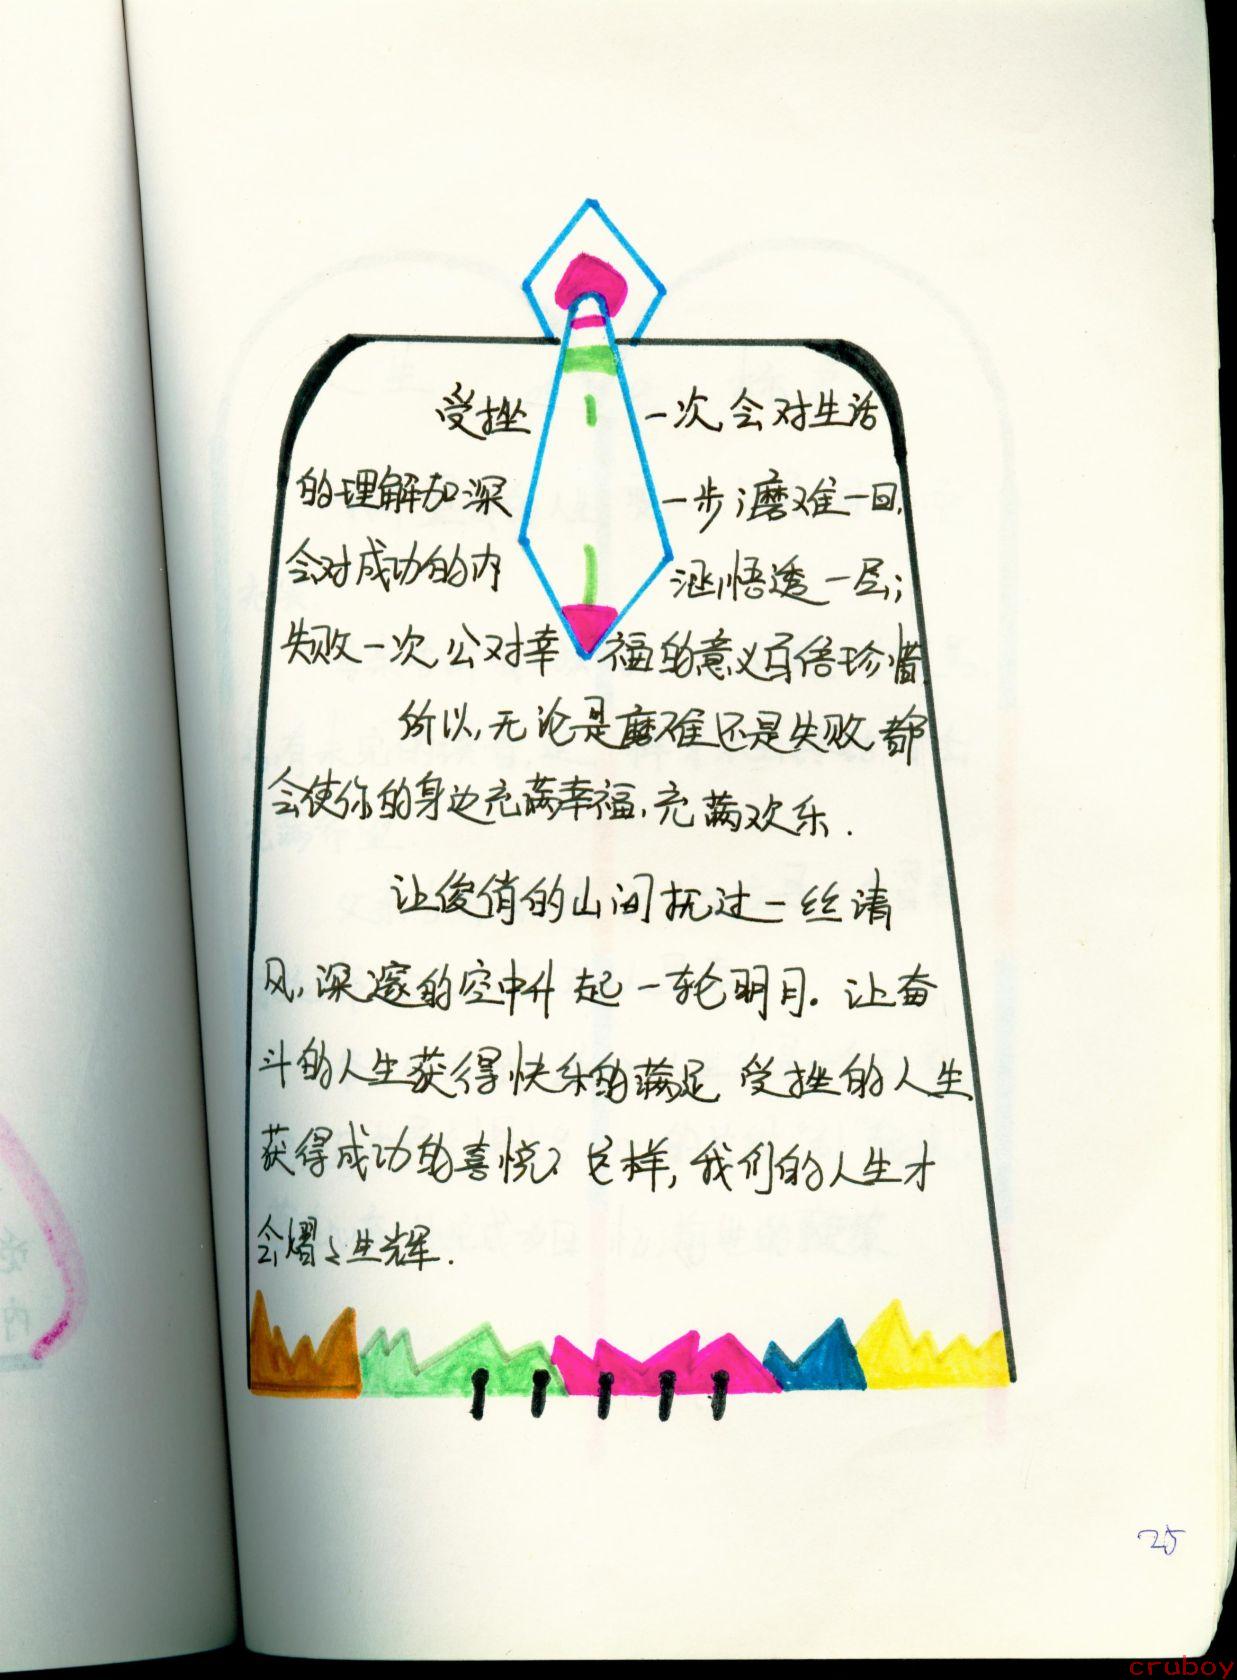 受挫 一次,会对生活
的理解加深 一步;磨难一回,
会对成功的内 涵悟透一层;
失败一次,公对幸 福的意义百倍珍惜.
所以,无论是磨难还是失败,都
会使你的身边充满幸福,充满欢乐.
让俊俏的山间扰过一丝请
风,深邃的空中升起一轮明月。让奋
斗的人生获得快乐的满足,受挫的人生
获得成功的喜悦? 这样,我们的人生才
会熠々生辉.
25
cruboy